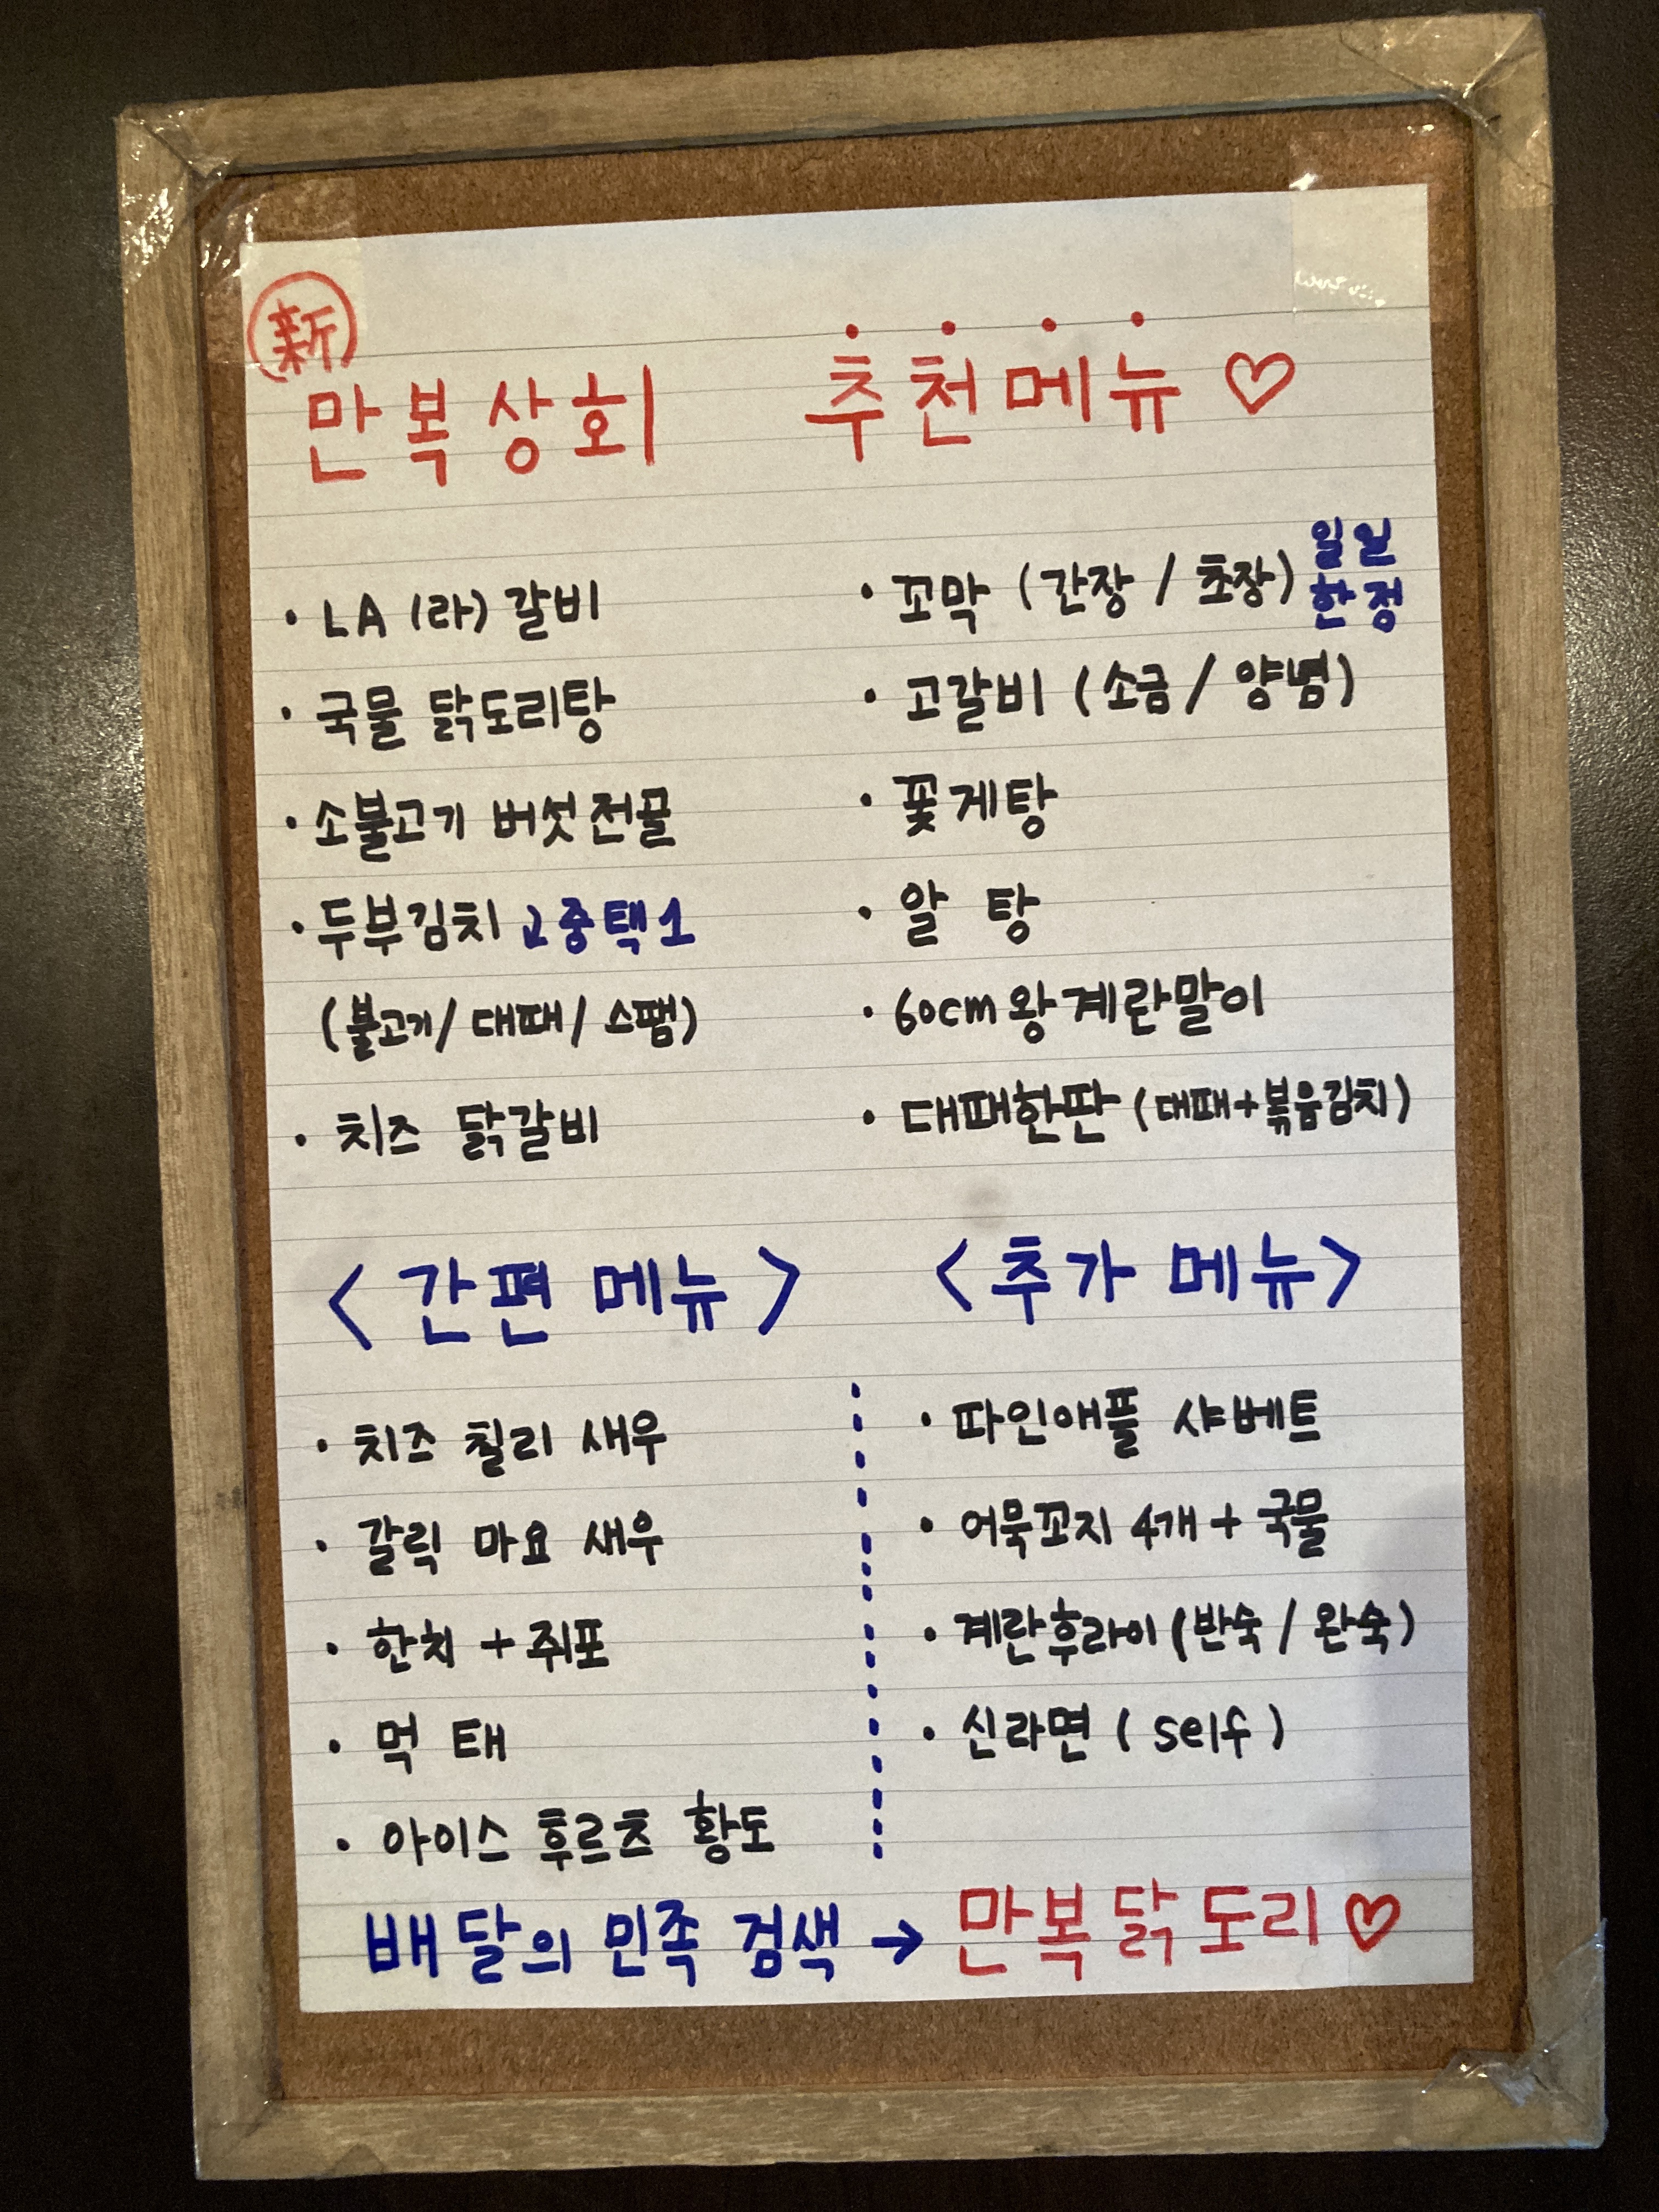 新
만복상회 추천메뉴 ♡
· LA (라) 갈비
· 국물 닭도리탕
· 소불고기 버섯전골
· 두부김치 중택1
(불고기 / 대패 / 스팸)
· 치즈 닭갈비
· 꼬막 (간장 / 초장) 일일
한정
· 고갈비 (소금 / 양념)
· 꽃게탕
· 알 탕
· 60cm 왕계란말이
· 대패한판 (대패+볶음김치)
< 간편 메뉴 >
· 치즈 칠리 새우
· 갈릭 마요 새우
· 한치 + 쥐포
· 먹 태
· 아이스 후르츠 황도
< 추가 메뉴 >
· 파인애플 샤베트
· 어묵꼬지 4개 + 국물
· 계란후라이 (반숙 / 완숙)
· 신라면 ( self )
배달의 민족 검색 → 만복닭도리 ♡